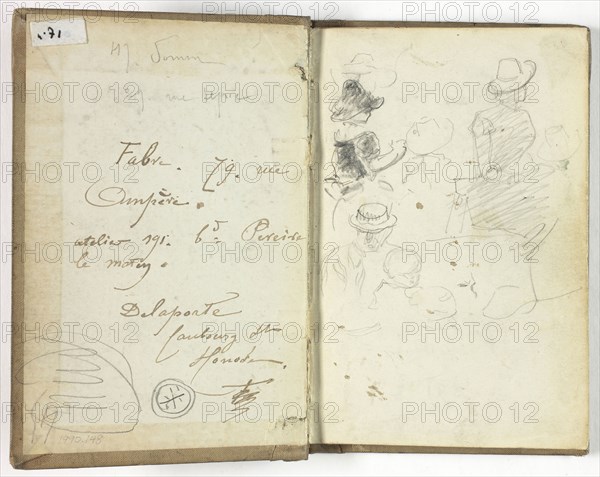 Fabre. 79. rue
Ampère.
atelier 191. bd Pereire
le matin.
Delaporte
faubourg St
Honoré.